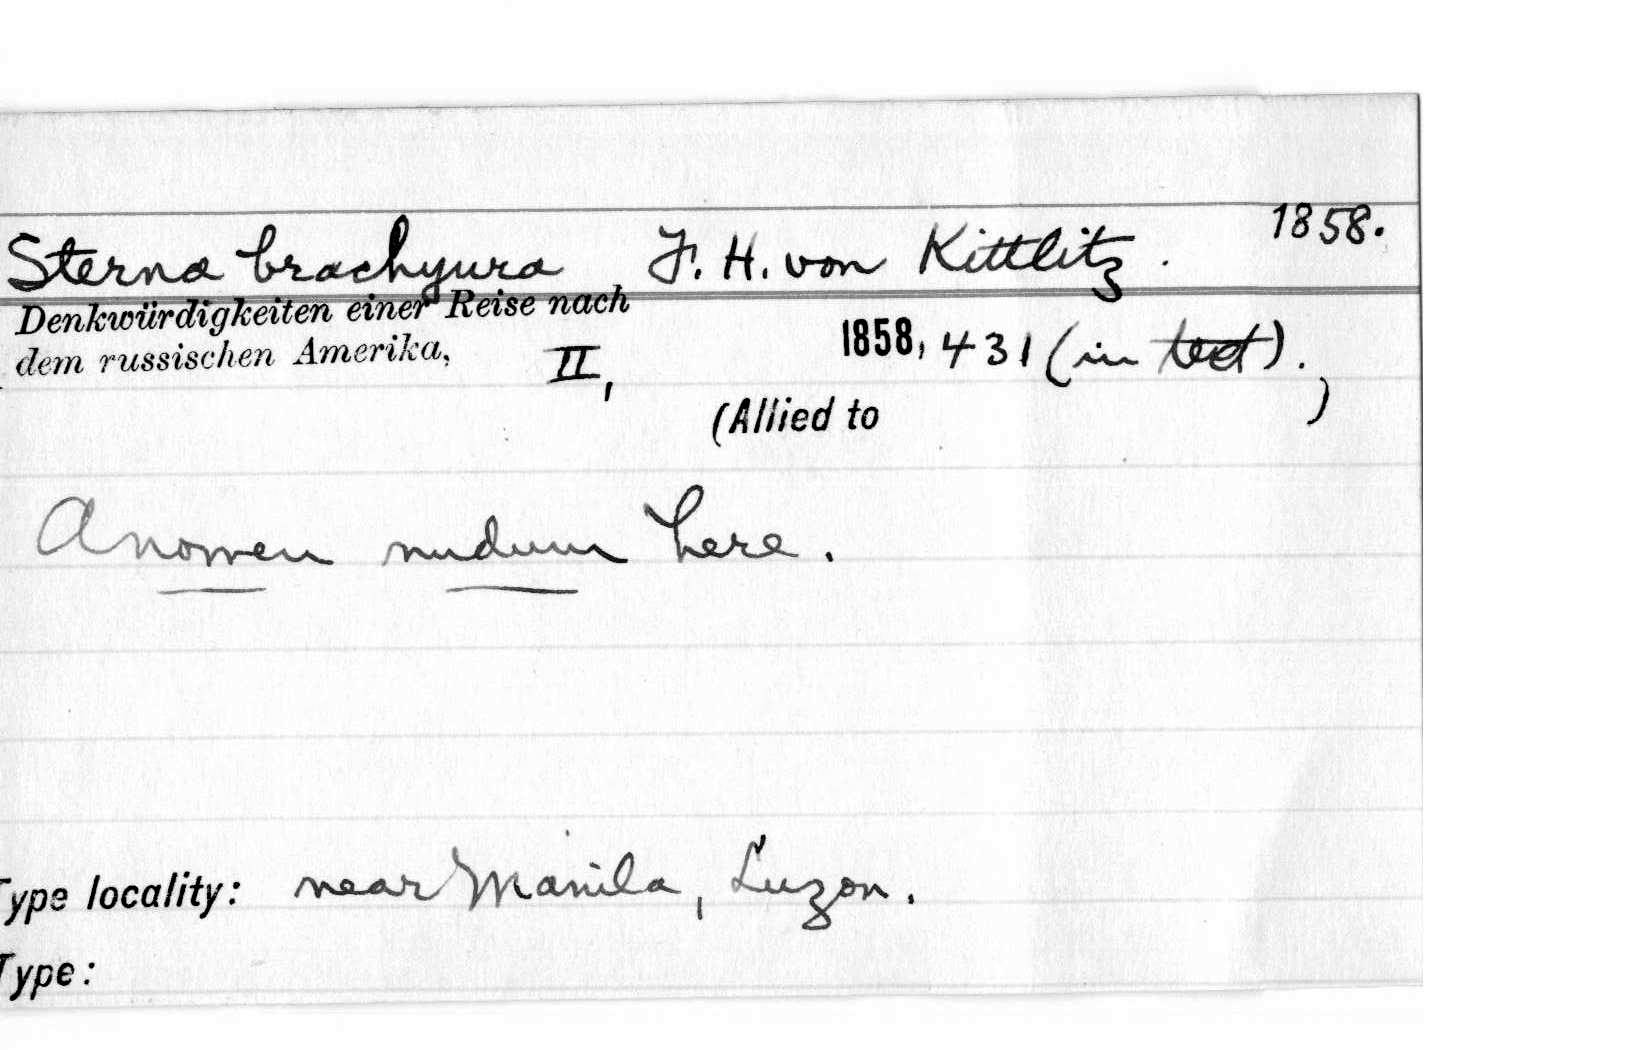 Sterna brachyura F. H. von Kittlitz. 1858.
Denkwürdigkeiten einer Reise nach
dem russischen Amerika, II, 1858, 431 (in text).
(Allied to )
A nomen nudum here.
Type locality: near Manila, Luzon.
Type: